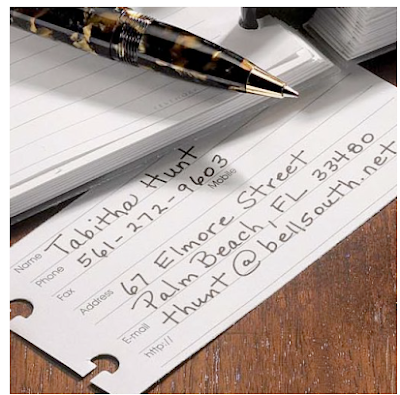 Name Tabitha Hunt
Phone 561-272-9603 Mobile
Fax
Address 67 Elmore Street
Palm Beach, FL 33480
E-mail thunt@bellsouth.net
http://